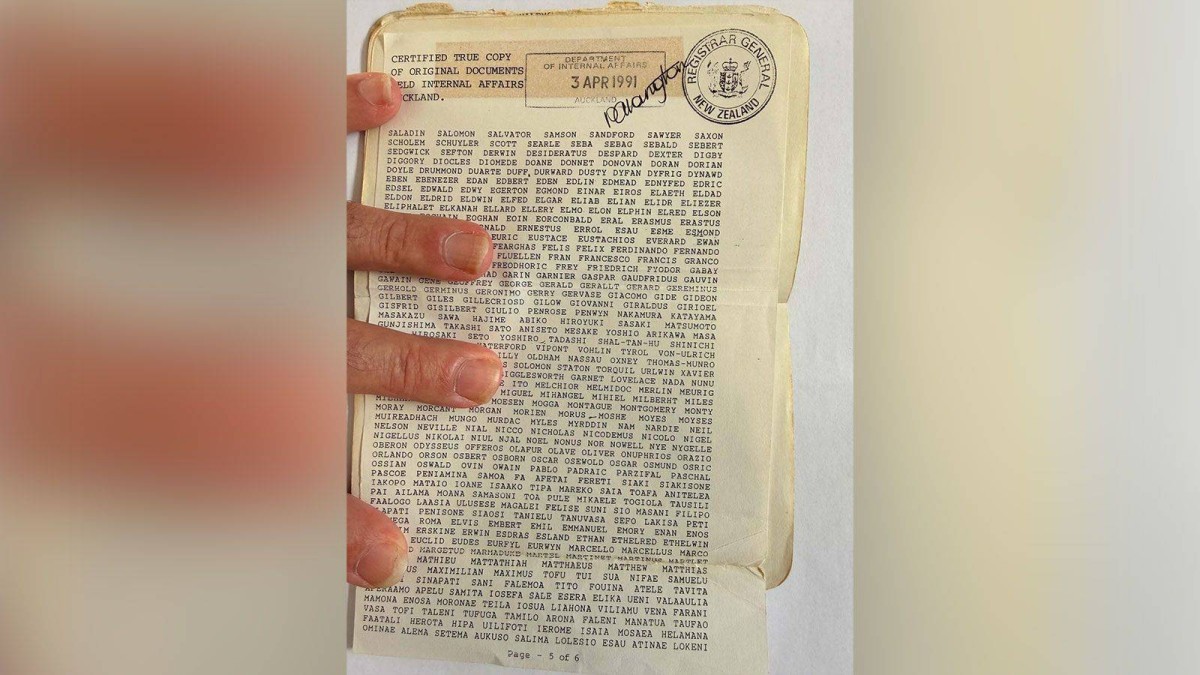 CERTIFIED TRUE COPY
OF ORIGINAL DOCUMENTS
HELD INTERNAL AFFAIRS
AUCKLAND.
DEPARTMENT
OF INTERNAL AFFAIRS
3 APR 1991
AUCKLAND
REGISTRAR GENERAL
NEW ZEALAND
SALADIN SALOMON SALVATOR SAMSON SANDFORD SAWYER SAXON
SCHOLEM SCHUYLER SCOTT SEARLE SEBA SEBAG SEBALD SEBERT
SEDGWICK SEFTON DERWIN DESIDERATUS DESPARD DEXTER DIGBY
DIGGORY DIOCLES DIOMEDE DOANE DONNET DONOVAN DORAN DORIAN
DOYLE DRUMMOND DUARTE DUFF DURWARD DUSTY DYFAN DYFRIG DYNAWD
EBEN EBENEZER EDAN EDBERT EDEN EDLIN EDMEAD EDNYFED EDRIC
EDSEL EDWALD EDWY EGERTON EGMOND EINAR EIROS ELAETH ELDAD
ELDON ELDRID ELDWIN ELFED ELGAR ELIAB ELIAN ELIDR ELIEZER
ELIPHALET ELKANAH ELLARD ELLERY ELMO ELON ELPHIN ELRED ELSON
EOGHAN EOIN EORCONBALD ERAL ERASMUS ERASTUS
NALD ERNESTUS ERROL ESAU ESME ESMOND
EURIC EUSTACE EUSTACHIOS EVERARD EWAN
FEARGHAS FELIS FELIX FERDINANDO FERNANDO
FLUELLEN FRAN FRANCESCO FRANCIS GRANCO
FREODHORIC FREY FRIEDRICH FYODOR GABAY
GARIN GARNIER GASPAR GAUDFRIDUS GAUVIN
GAWAIN GENE GEOFFREY GEORGE GERALD GERALLT GERARD GEREMINUS
GERHOLD GERMINUS GERONIMO GERRY GERVASE GIACOMO GIDE GIDEON
GILBERT GILES GILLECRIOSD GILOW GIOVANNI GIRALDUS GIRIOEL
GISFRID GISILBERT GIULIO PENROSE PENWYN NAKAMURA KATAYAMA
MASAKAZU SAWA HAJIME ABIKO HIROYUKI SASAKI MATSUMOTO
GUNJISHIMA TAKASHI SATO ANISETO MESAKE YOSHIO ARIKAWA MASA
HIROSAKI SETO YOSHIRO TADASHI SHAL-TAN-HU SHINICHI
WATERFORD VIPONT VOHLIN TYROL VON-ULRICH
ILLY OLDHAM NASSAU OXNEY THOMAS-MUNRO
SOLOMON STATON TORQUIL URLWIN XAVIER
IGGLESWORTH GARNET LOVELACE NADA NUNU
ITO MELCHIOR MELMIDOC MERLIN MEURIG
MIGUEL MIHANGEL MIHIEL MILBERHT MILES
MOESEN MOGGA MONTAGUE MONTGOMERY MONTY
MORAY MORCANT MORGAN MORIEN MORUS MOSHE MOYES MOYSES
MUIREADHACH MUNGO MURDAC MYLES MYRDDIN NAM NARDIE NEIL
NELSON NEVILLE NIAL NICCO NICHOLAS NICODEMUS NICOLO NIGEL
NIGELLUS NIKOLAI NIUL NJAL NOEL NONUS NOR NOWELL NYE NYGELLE
OBERON ODYSSEUS OFFEROS OLAFUR OLAVE OLIVER ONUPHRIOS ORAZIO
ORLANDO ORSON OSBERT OSBORN OSCAR OSEWOLD OSGAR OSMUND OSRIC
OSSIAN OSWALD OVIN OWAIN PABLO PADRAIC PARZIFAL PASCHAL
PASCOE PENIAMINA SAMOA FA AFETAI FERETI SIAKI SIAKISONE
IAKOPO MATAIO IOANE ISAAKO TIPA MAREKO SAIA TOAFA ANITELEA
PAI AILAMA MOANA SAMASONI TOA PULE MIKAELE TOGIOLA TAUSILI
FAALOGO LAASIA ULUSESE MAGALEI FELISE SUNI SIO MASANI FILIPO
LAPATI PENISONE SIAOSI TANIELU TANUVASA SEFO LAKISA PETI
MEGA ROMA ELVIS EMBERT EMIL EMMANUEL EMORY ENAN ENOS
ERSKINE ERWIN ESDRAS ESLAND ETHAN ETHELRED ETHELWIN
EUCLID EUDES EURFYL EURWYN MARCELLO MARCELLUS MARCO
MARGETUD MARMADUKE MARTEL MARTINET MARTINUS MARTLET
MATHIEU MATTATHIAH MATTHAEUS MATTHEW MATTHIAS
US MAXIMILIAN MAXIMUS TOFU TUI SUA NIFAE SAMUELU
SINAPATI SANI FALEMOA TITO FOUINA ATELE TAVITA
APERAAMO APELU SAMITA IOSEFA SALE ESERA ELIKA UENI VALAAULIA
MAMONA ENOSA MORONAE TEILA IOSUA LIAHONA VILIAMU VENA FARANI
VASA TOFI TALENI TUFUGA TAMILO ARONA FALENI MANATUA TAUFAO
FAATALI HEROTA HIPA UILIFOTI IEROME ISAIA MOSAEA HELAMANA
OMINAE ALEMA SETEMA AUKUSO SALIMA LOLESIO ESAU ATINAE LOKENI
Page - 5 of 6